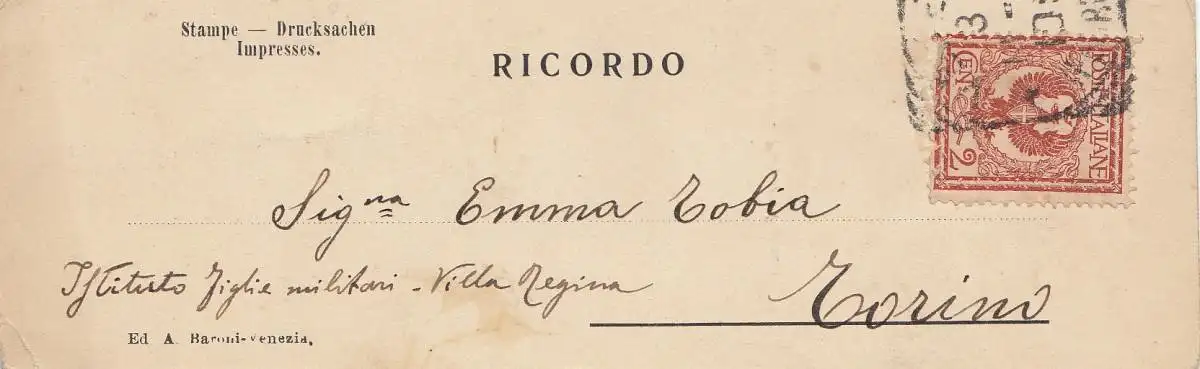 Stampe — Drucksachen
Impresses.
RICORDO
POSTE ITALIANE
CENT 2
Signa Emma Tobia
Istituto Figlie militari - Villa Regina
Torino
Ed A. Baroni-Venezia.